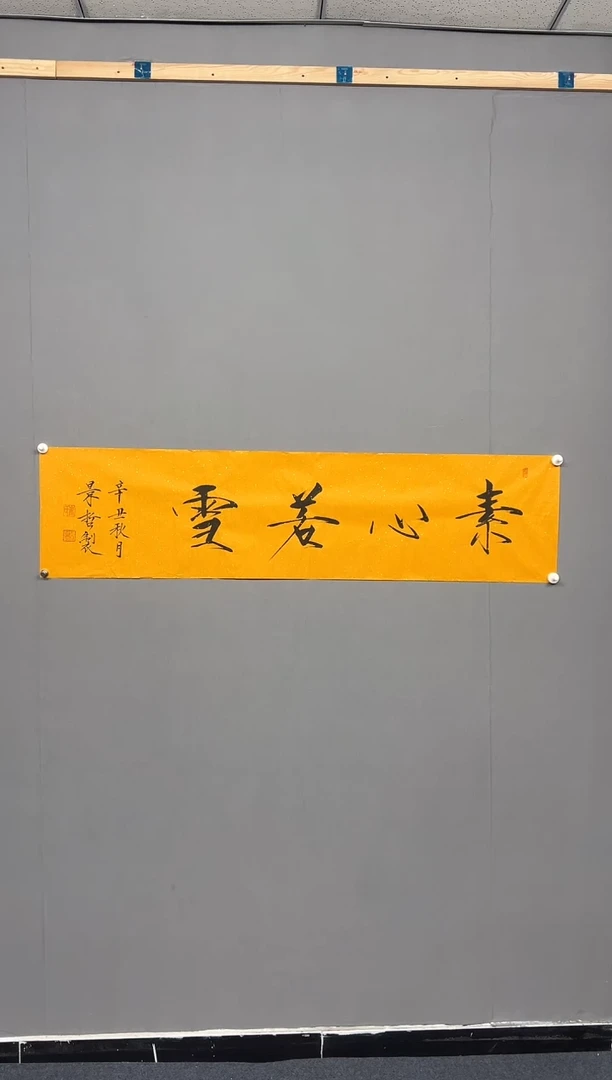 素心若雪
辛丑秋月
景哲製